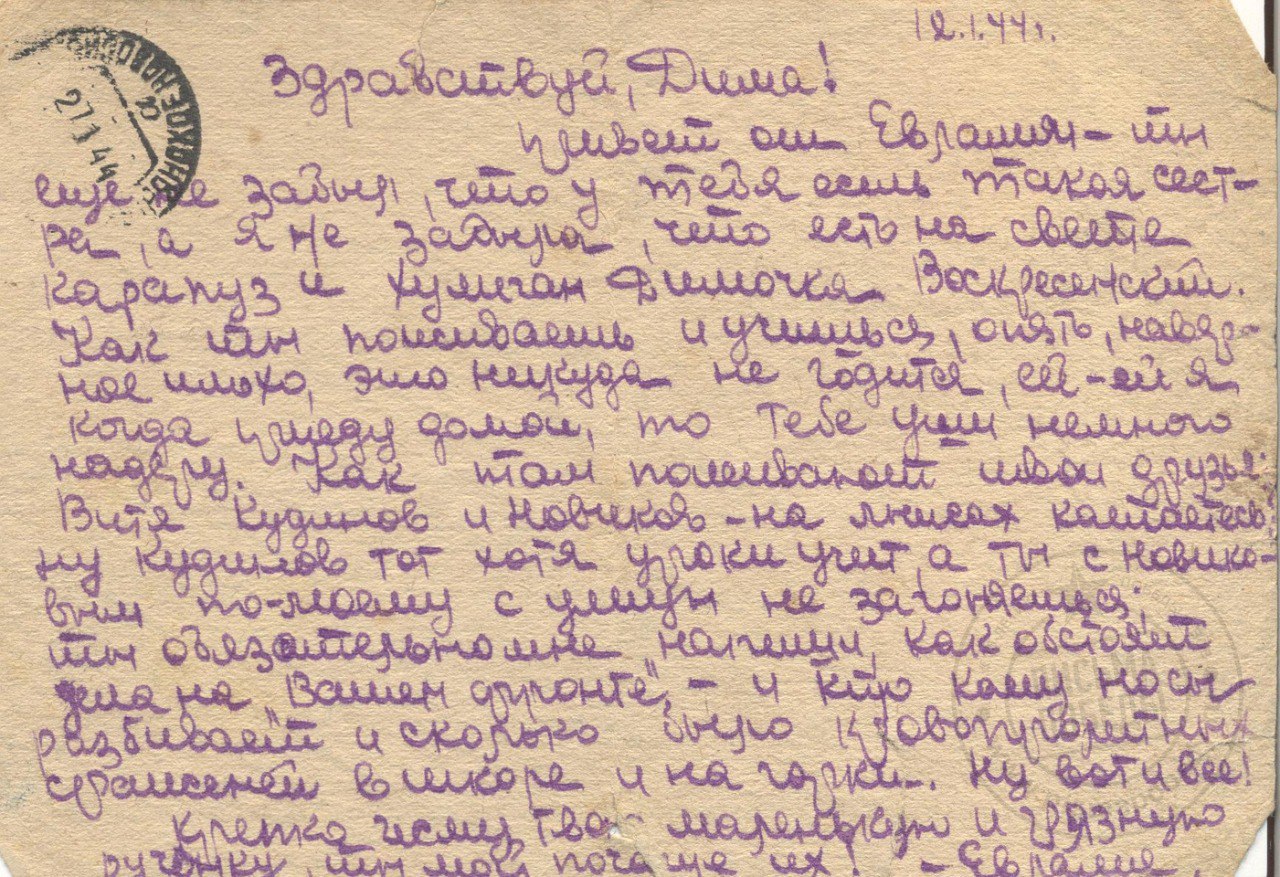 12.1.44г.
Здравствуй, Дима!
привет от Евралии – ты
еще не забыл, что у тебя есть такая сест-
ра, а я не забыла, что есть на свете
карапуз и хулиган Димочка Воскресенский.
Как ты поживаешь и учишься, опять, навер-
ное плохо, это никуда не годится, ей-ей я,
когда приеду домой, то тебе уши немного
надеру. Как там поживают твои друзья:
Витя Кудинов и Новиков – на лыжах катаетесь,
ну Кудинов тот хотя уроки учит, а ты с Новико-
вым по-моему с улицы не загоняешься;
ты обязательно мне напиши, как обстоят
дела на "Вашем фронте", – и кто кому носы
разбивает и сколько было кровопролитных
сражений в школе и на горки. Ну вот и все!
Крепко жму твою маленькую и грязную
ручёнку, ты мой почаще их! – Евралия.
27.1.44